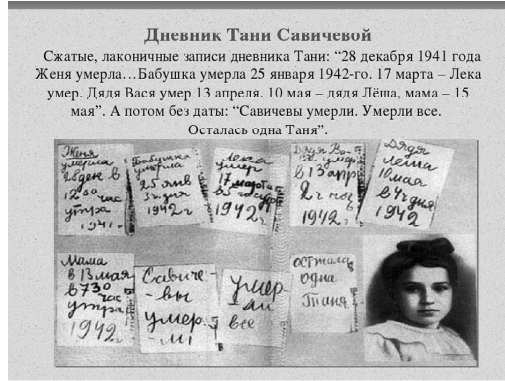 Дневник Тани Савичевой
Сжатые, лаконичные записи дневника Тани: “28 декабря 1941 года
Женя умерла…Бабушка умерла 25 января 1942-го. 17 марта – Лека
умер. Дядя Вася умер 13 апреля. 10 мая – дядя Лёша, мама – 15
мая”. А потом без даты: “Савичевы умерли. Умерли все.
Осталась одна Таня”.
Женя
умерла
28 дек в
12 30 час
утра
1941 г
Бабушка
умерла
25 янв
3 ч. дня
1942 г
Лека
умер
17 марта
в 5 час утр
1942 г
Дядя Ва
умер
в 13 апр
2 ч ноч
1942 г
Дядя
Леша
10 мая
в 4 ч дня
1942
Мама
в 13 мая
в 7 30
час
утра
1942 г
Савиче-
-вы
умер-
-ли
умер
ли
все
остала
одна
Таня